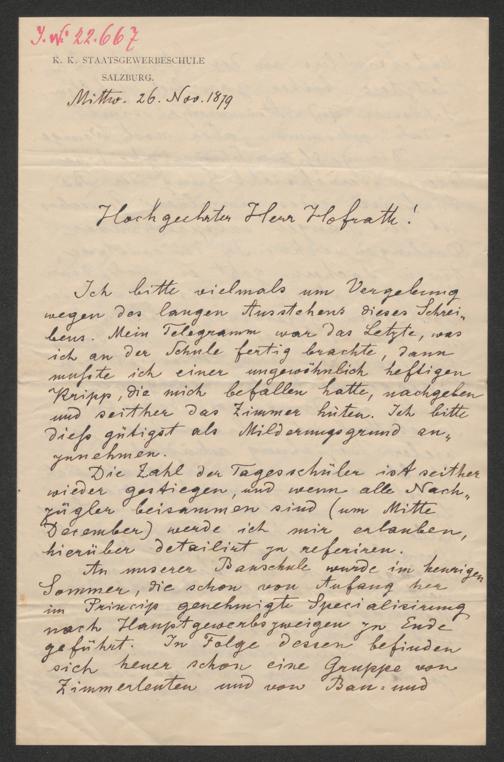 J. No 22.667
K. K. STAATSGEWERBESCHULE
SALZBURG.
Mittw. 26. Nov. 1879
Hochgeehrter Herr Hofrath!
Ich bitte vielmals um Vergebung
wegen des langen Ausstehens dieses Schrei-
bens. Mein Telegramm war das Letzte, was
ich an der Schule fertig brachte, dann
mußte ich einer ungewöhnlich heftigen
Kripp, die mich befallen hatte, nachgeben
und seither das Zimmer hüten. Ich bitte
dieß gütigst als Milderungsgrund an-
zunehmen.
Die Zahl der Tagesschüler ist seither
wieder gestiegen, und wenn alle Nach-
zügler beisammen sind (um Mitte
December) werde ich mir erlauben,
hierüber detailirt zu referiren.
An unserer Bauschule wurde im heurigen
Sommer, die schon von Anfang her
im Princip genehmigte Specialisirung
nach Hauptgewerbszweigen zu Ende
geführt. In Folge dessen befinden
sich heuer schon eine Gruppe von
Zimmerleuten und von Bau- und